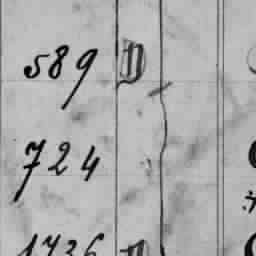 589 D
724
1736 D